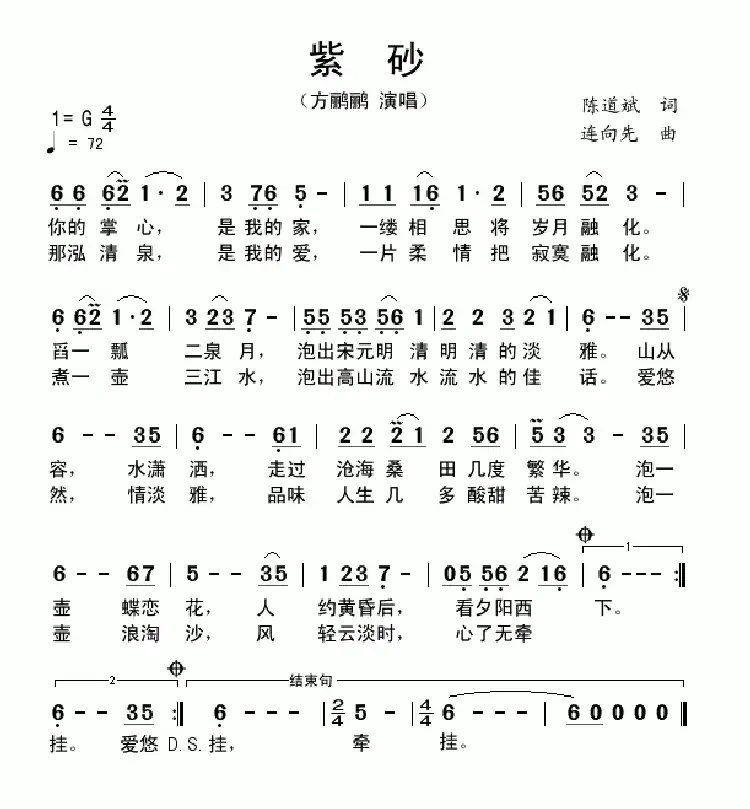 紫 砂
（方鹂鹂 演唱）
陈道斌 词
1= G 4/4
连向先 曲
♩ = 72
6 6 6 2 1 · 2 | 3 7 6 5 - | 1 1 1 6 1 · 2 | 5 6 5 2 3 - |
你的 掌 心， 是 我的 家， 一缕 相 思 将 岁月 融 化。
那泓 清 泉， 是 我的 爱， 一片 柔 情 把 寂寞 融 化。
6 6 2 1 · 2 | 3 2 3 7 - | 5 5 5 3 5 6 1 | 2 2 3 2 1 | 6 - - 3 5 |
舀一 瓢 二泉 月， 泡出宋元明 清 明 清 的 淡 雅。 山从
煮一 壶 三江 水， 泡出高山流 水 流 水 的 佳 话。 爱悠
6 - - 3 5 | 6 - - 6 1 | 2 2 2 1 2 5 6 | 5 3 3 - 3 5 |
容， 水潇 洒， 走过 沧海 桑 田 几度 繁 华。 泡一
然， 情淡 雅， 品味 人生 几 多 酸甜 苦 辣。 泡一
1
6 - - 6 7 | 5 - - 3 5 | 1 2 3 7 - | 0 5 5 6 2 1 6 | 6 - - - :||
壶 蝶恋 花， 人 约黄昏后， 看夕阳西 下。
壶 浪淘 沙， 风 轻云淡时， 心了无牵
2 结束句
6 - - 3 5 :|| 6 - - | 2/4 5 - | 4/4 6 - - - | 6 0 0 0 0 ||
挂。 爱悠 D.S.挂， 牵 挂。